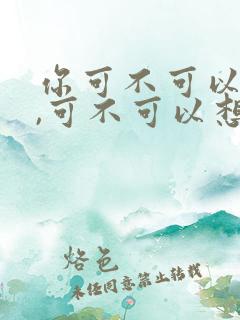 你可不可以
,可不可以想
烙色
未经同意禁止转载